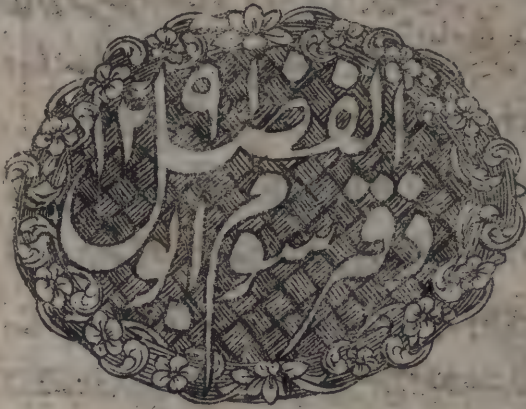 دفتر سوم ابو
الفضل
۱۲۹۱